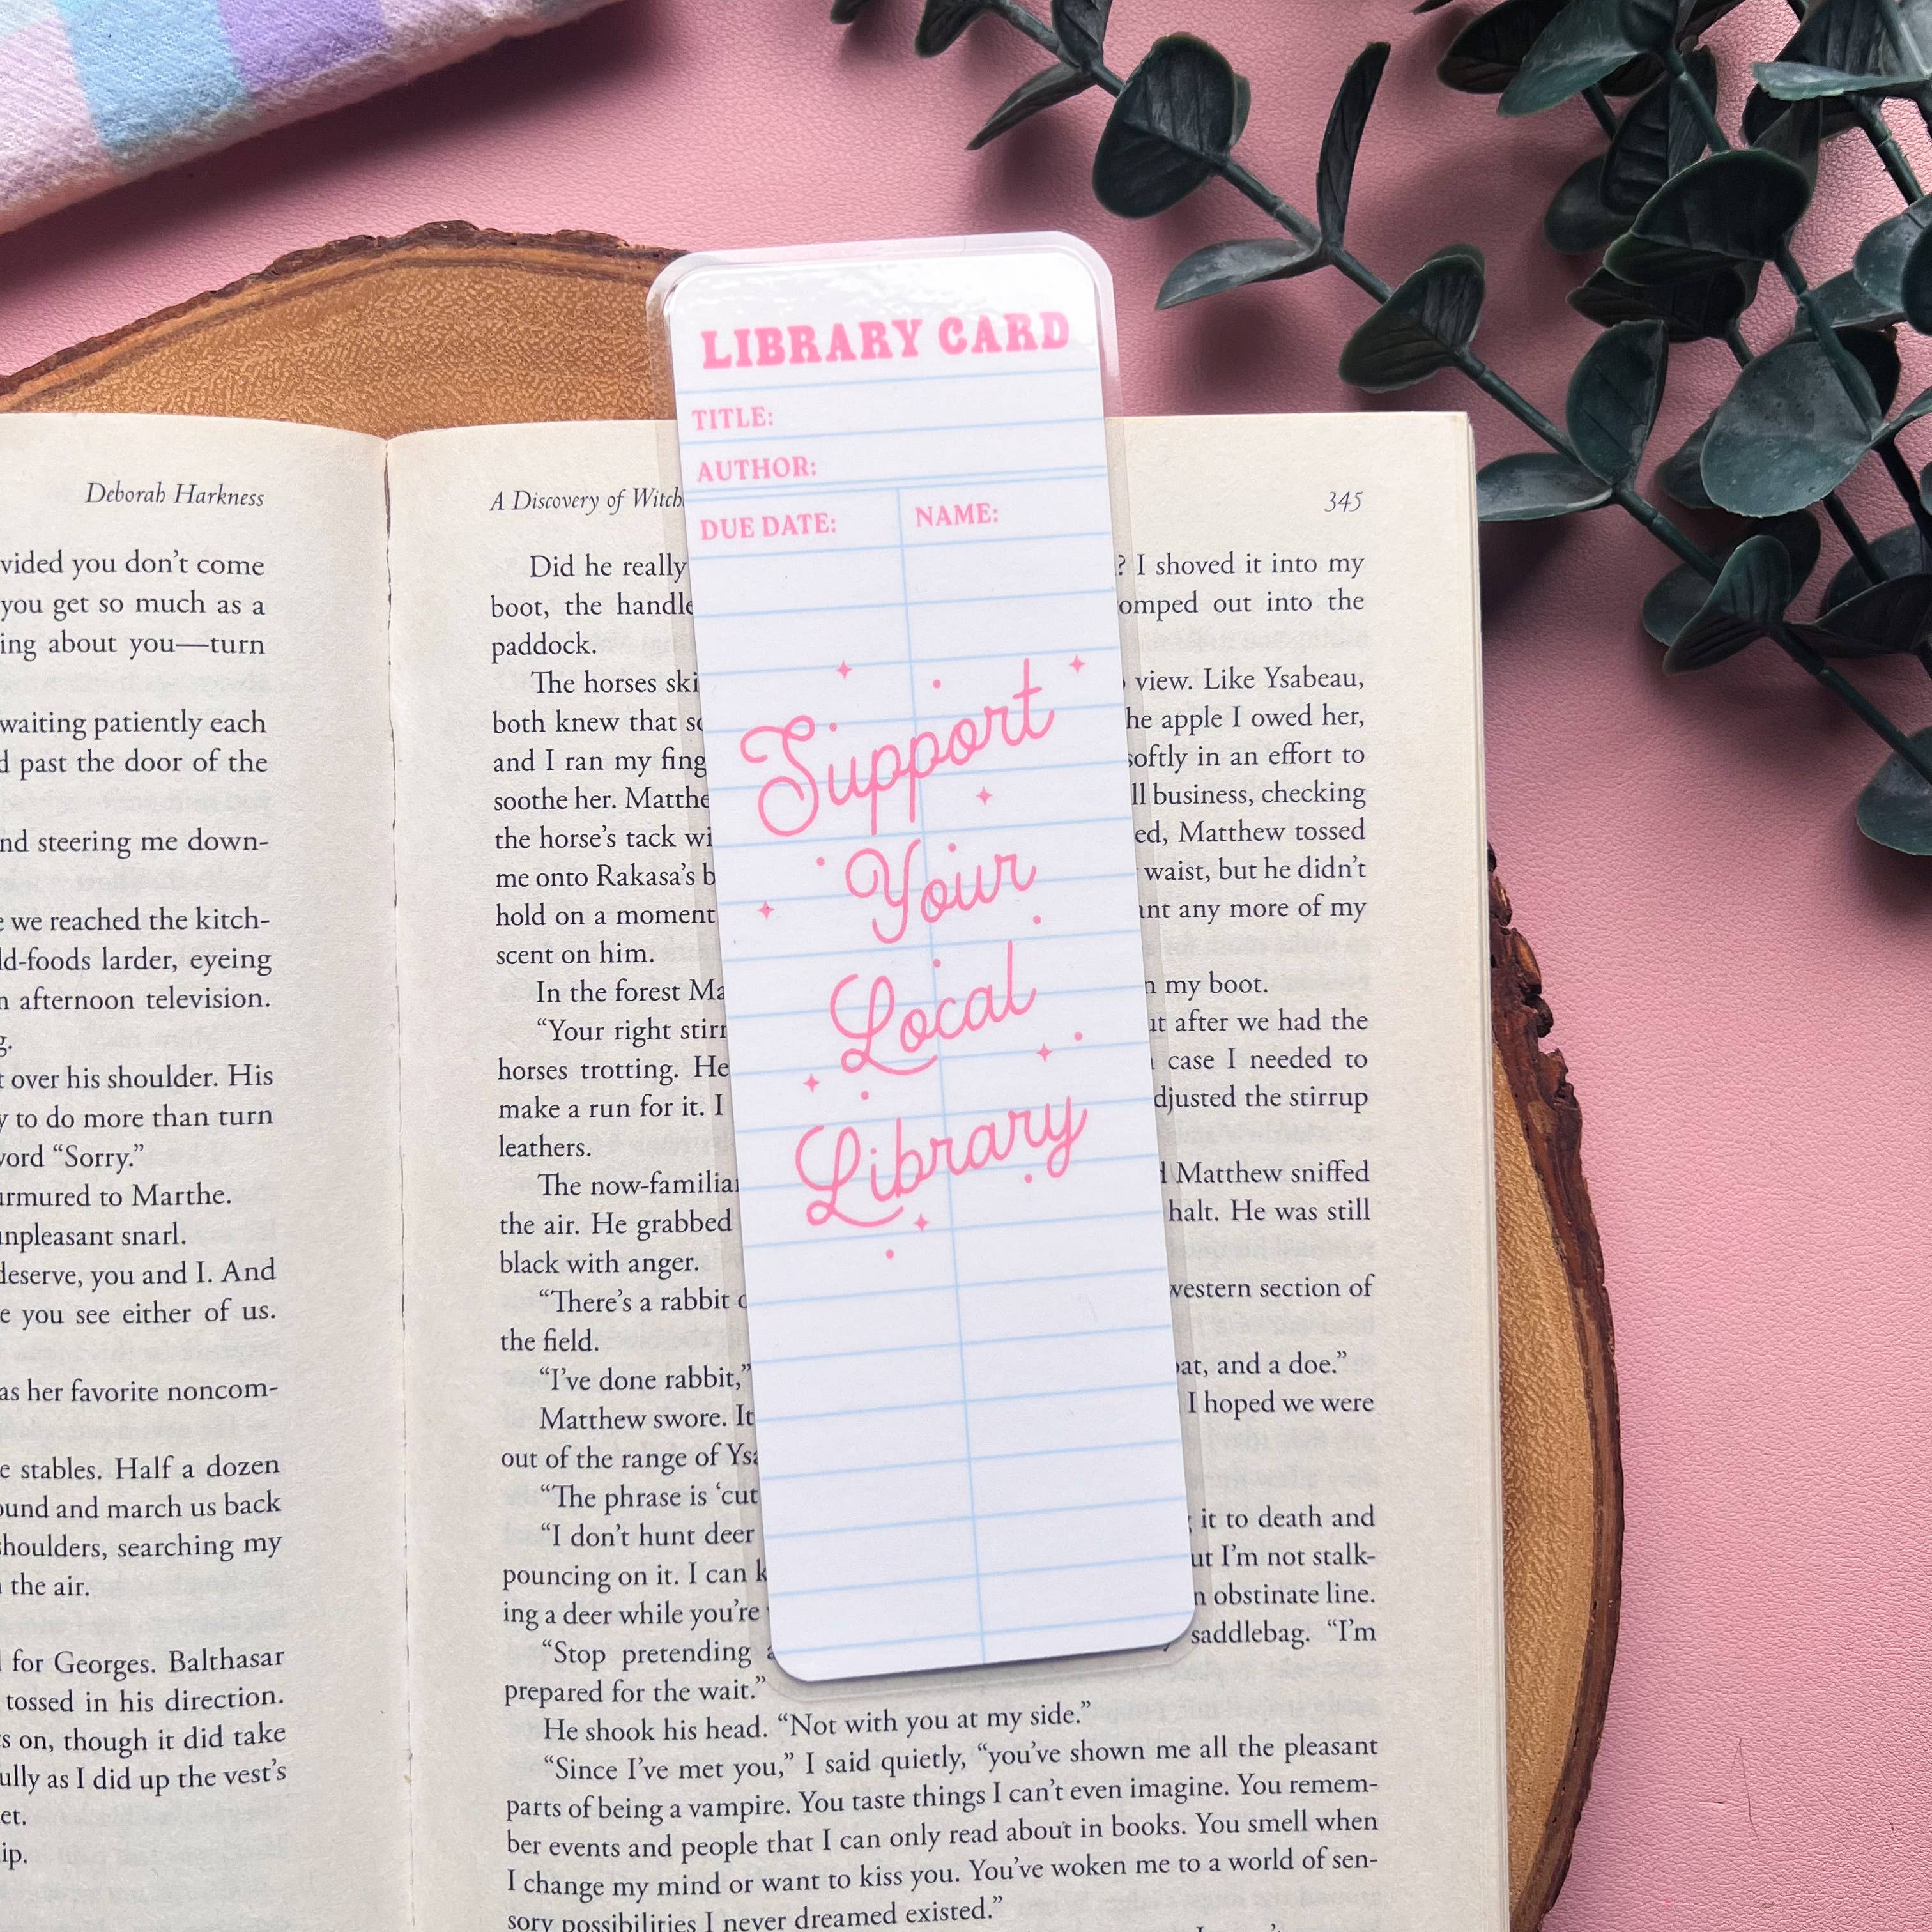 LIBRARY CARD
TITLE:
AUTHOR:
DUE DATE: NAME:
Support
Your
Local
Library
Deborah Harkness
vided you don't come
you get so much as a
ing about you—turn
waiting patiently each
past the door of the
nd steering me down-
we reached the kitch-
ld-foods larder, eyeing
afternoon television.
over his shoulder. His
to do more than turn
word “Sorry.”
urmured to Marthe.
unpleasant snarl.
deserve, you and I. And
you see either of us.
as her favorite noncom-
stables. Half a dozen
ound and march us back
shoulders, searching my
the air.
for Georges. Balthasar
tossed in his direction.
on, though it did take
ully as I did up the vest's
A Discovery of Witch
345
Did he really ? I shoved it into my
boot, the handle omped out into the
paddock.
The horses ski view. Like Ysabeau,
both knew that so he apple I owed her,
and I ran my fing softly in an effort to
soothe her. Matthe ll business, checking
the horse's tack wi ed, Matthew tossed
me onto Rakasa's b waist, but he didn't
hold on a moment ant any more of my
scent on him.
In the forest Ma n my boot.
“Your right stirr ut after we had the
horses trotting. He case I needed to
make a run for it. I djusted the stirrup
leathers.
The now-familiar Matthew sniffed
the air. He grabbed halt. He was still
black with anger.
“There's a rabbit western section of
the field.
“I've done rabbit,” oat, and a doe.”
Matthew swore. It I hoped we were
out of the range of Ysa
“The phrase is ‘cut it to death and
“I don't hunt deer ut I'm not stalk-
pouncing on it. I can k n obstinate line.
ing a deer while you're saddlebag. “I'm
“Stop pretending
prepared for the wait.”
He shook his head. “Not with you at my side.”
“Since I've met you,” I said quietly, “you've shown me all the pleasant
parts of being a vampire. You taste things I can't even imagine. You remem-
ber events and people that I can only read about in books. You smell when
I change my mind or want to kiss you. You've woken me to a world of sen-
sory possibilities I never dreamed existed.”